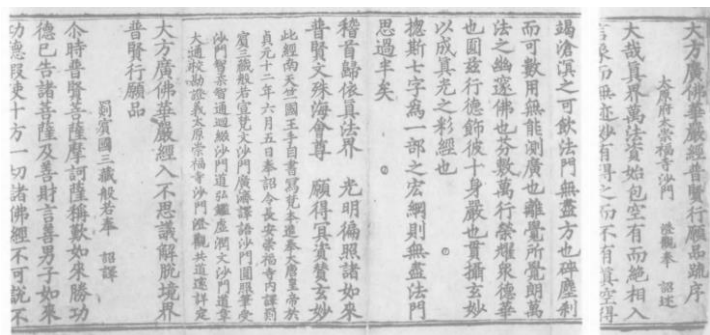 大方廣佛華嚴經普賢行願品疏序
大原府大崇福寺沙門 澄觀奉 詔述
大哉真界萬法資始包空有而絕相入
言象而無迹妙有得之而不有真空得
竭滄溟之可飲法門無盡方也碎塵刹
而可數用無能測廣也離覺所覺朗萬
法之幽邃佛也芬敷萬行榮耀衆德華
也圓茲行德飾彼十身嚴也貫攝玄妙
以成真光之彩經也
揔斯七字為一部之宏綱則無盡法門
思過半矣
稽首歸依真法界 光明徧照諸如來
普賢文殊海會尊 願得冥資賛玄妙
此經南天竺國王手自書寫梵本進奉大唐皇帝於
貞元十二年六月五日奉詔令長安崇福寺内譯罽
賓三藏般若宣梵文沙門廣濟譯語沙門圓照筆受
沙門智柔智通迴綴沙門道弘鑑虚潤文沙門道章
大通校勘證義太原崇福寺沙門澄觀共道邃詳定
大方廣佛華嚴經入不思議解脫境界
普賢行願品
罽賓國三藏般若奉 詔譯
尒時普賢菩薩摩訶薩稱歎如來勝功
德已告諸菩薩及善財言善男子如來
功德假使十方一切諸佛經不可說不